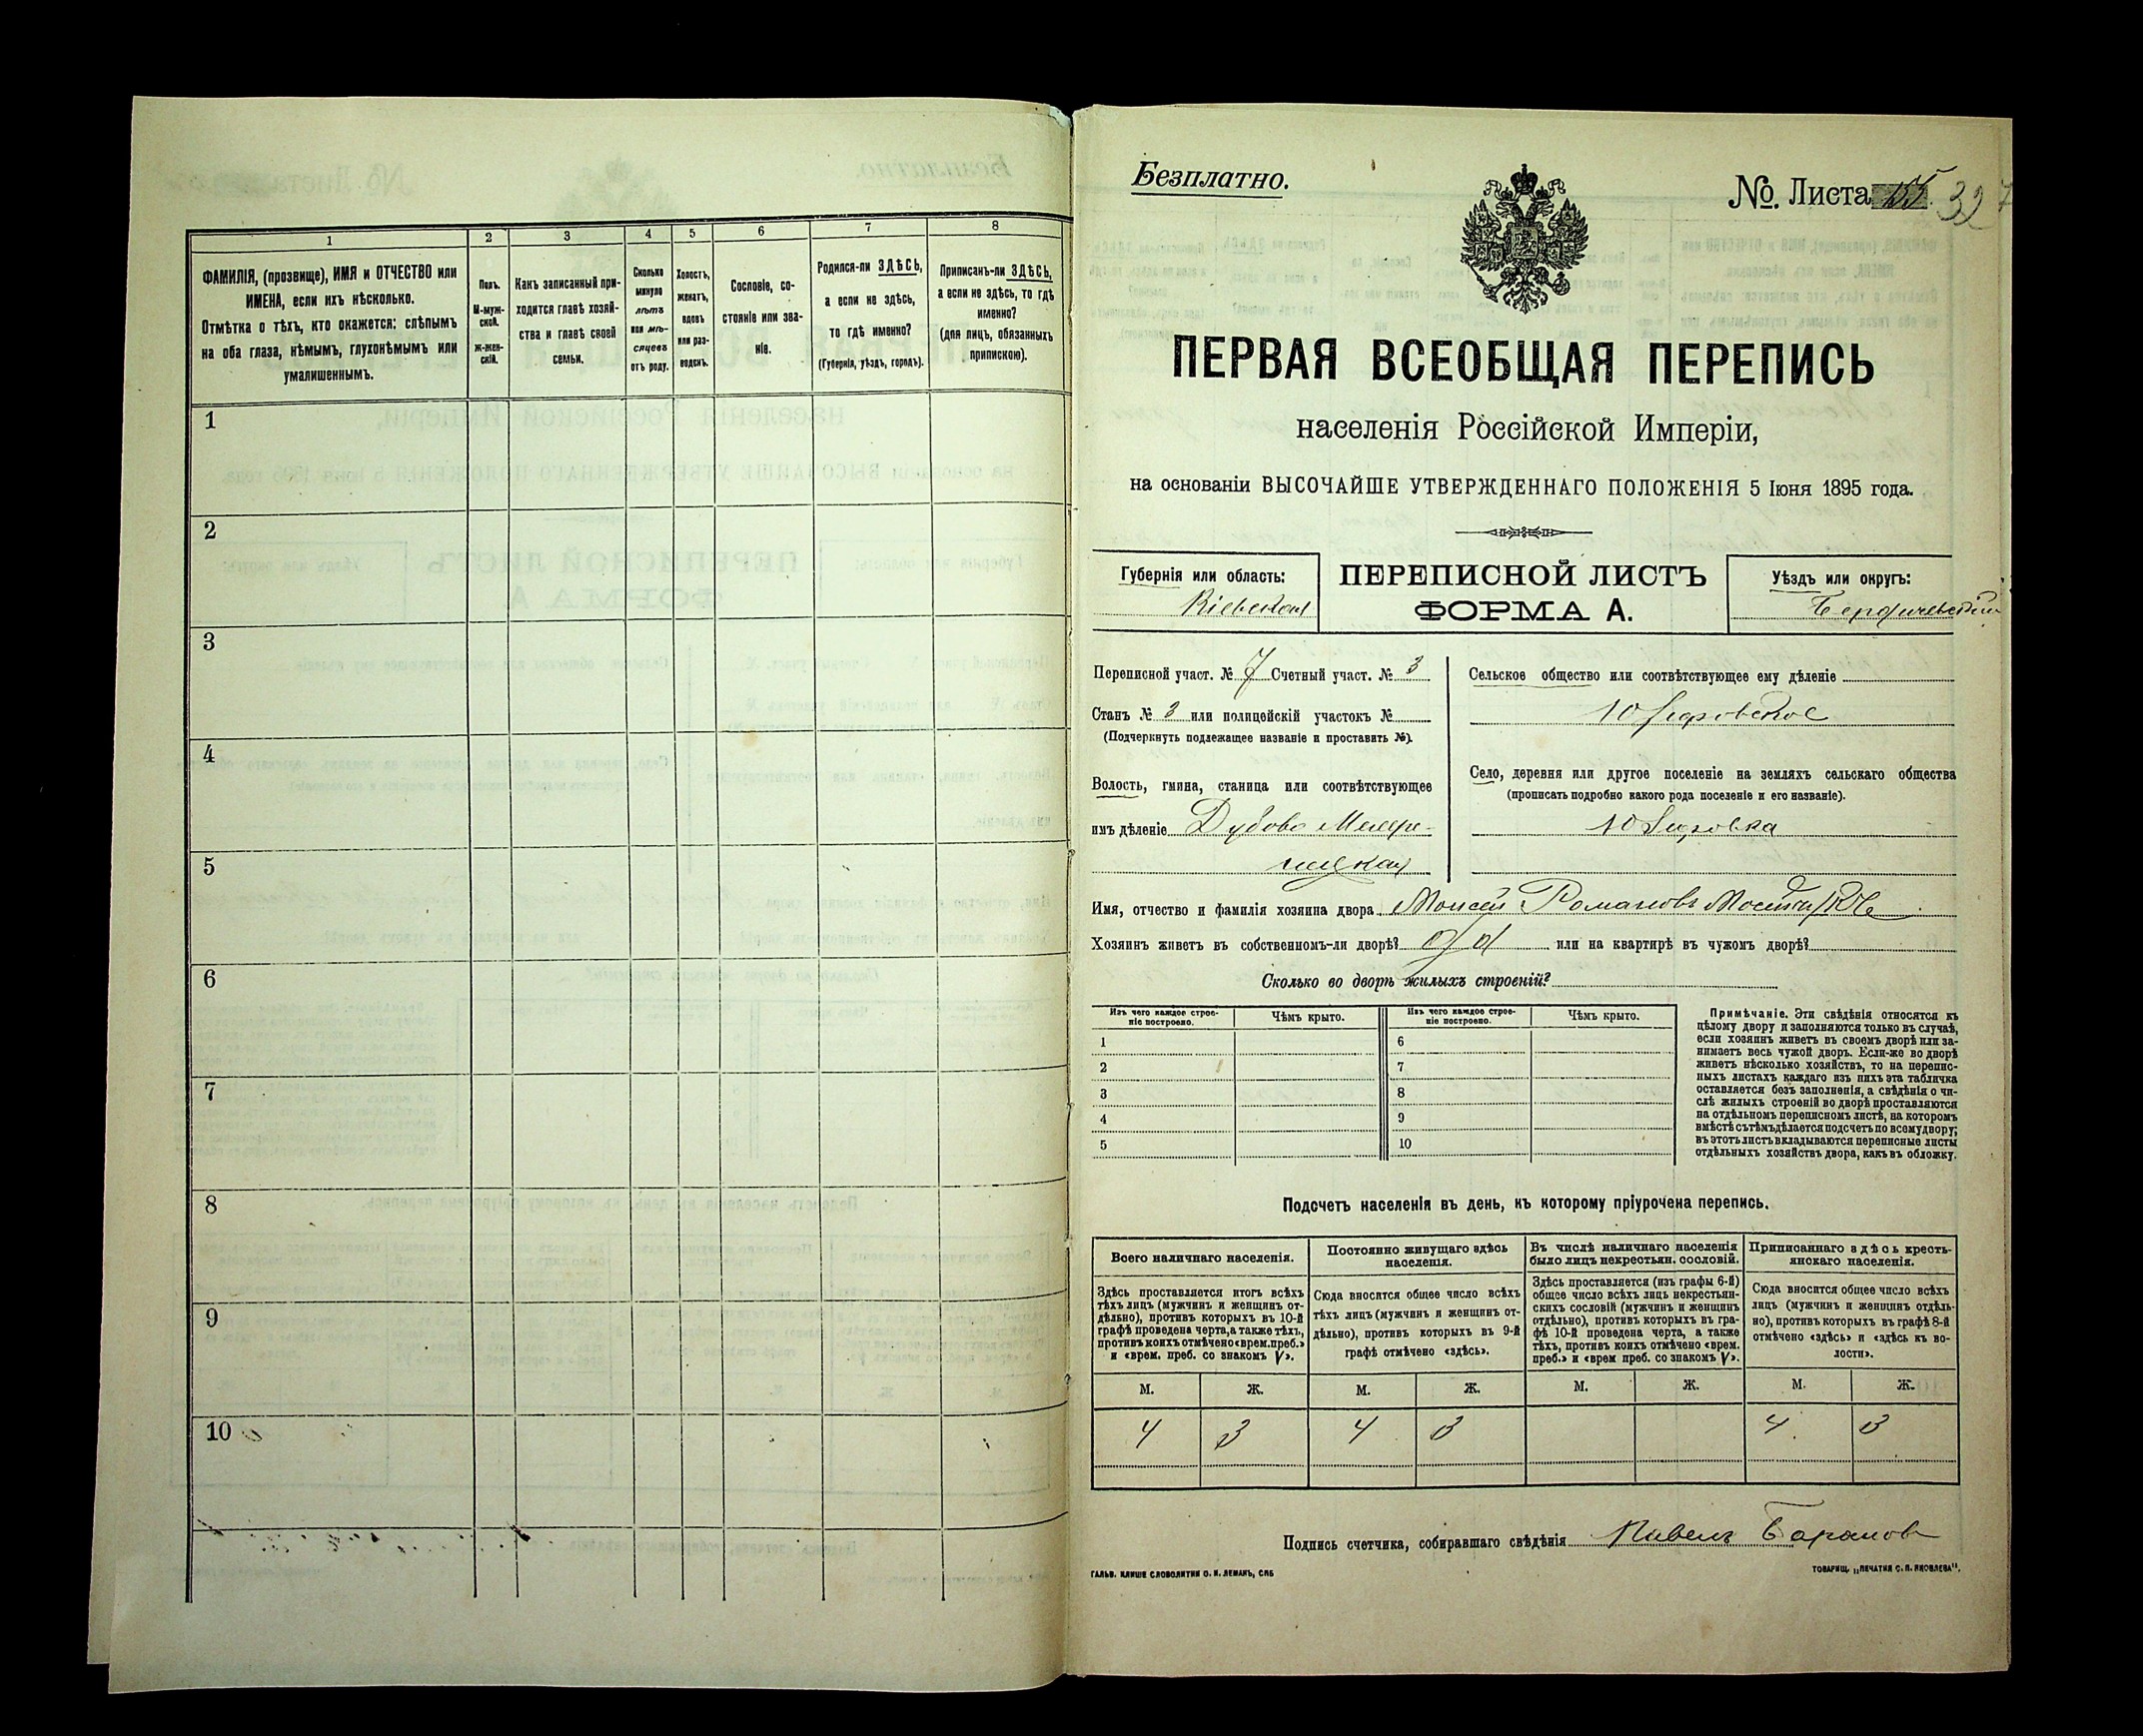 1 2 3 4 5 6 7 8
ФАМИЛІЯ, (прозвище), ИМЯ и ОТЧЕСТВО или
ИМЕНА, если ихъ нѣсколько.
Отмѣтка о тѣхъ, кто окажется: слѣпымъ
на оба глаза, нѣмымъ, глухонѣмымъ или
умалишеннымъ.
Полъ.
М-муж-
ской.
ж-жен-
скій.
Какъ записанный при-
ходится главѣ хозяй-
ства и главѣ своей
семьи.
Сколько
минуло
лѣтъ
или мѣ-
сяцевъ
отъ роду.
Холостъ,
женатъ,
вдовъ
или раз-
веденъ.
Сословіе, со-
стояніе или зва-
ніе.
Родился-ли ЗДѢСЬ,
а если не здѣсь,
то гдѣ именно?
(Губернія, уѣздъ, городъ).
Приписанъ-ли ЗДѢСЬ,
а если не здѣсь, то гдѣ
именно?
(для лицъ, обязанныхъ
припискою).
1
2
3
4
5
6
7
8
9
10
Безплатно.
№. Листа 155. 397
ПЕРВАЯ ВСЕОБЩАЯ ПЕРЕПИСЬ
населенія Россійской Имперіи,
на основаніи ВЫСОЧАЙШЕ УТВЕРЖДЕННАГО ПОЛОЖЕНІЯ 5 Іюня 1895 года.
Губернія или область:
Кіевская
ПЕРЕПИСНОЙ ЛИСТЪ
ФОРМА А.
Уѣздъ или округъ:
Бердичевскій
Переписной участ. № 7 Счетный участ. № 3
Станъ № 3 или полицейскій участокъ №
(Подчеркнуть подлежащее названіе и проставить №).
Волость, гмина, станица или соотвѣтствующее
имъ дѣленіе Дубово Межи-
Сельское общество или соотвѣтствующее ему дѣленіе
Юзефовское
Село, деревня или другое поселеніе на земляхъ сельскаго общества
(прописать подробно какого рода поселеніе и его названіе).
Имя, отчество и фамилія хозяина двора Моисей Романовъ
Хозяинъ живетъ въ собственномъ-ли дворѣ? да или на квартирѣ въ чужомъ дворѣ?
Сколько во дворѣ жилыхъ строеній?
Изъ чего каждое строе-
ніе построено.
Чѣмъ крыто.
Изъ чего каждое строе-
ніе построено.
Чѣмъ крыто.
1 6
2 7
3 8
4 9
5 10
Примѣчаніе. Эти свѣдѣнія относятся къ
цѣлому двору и заполняются только въ случаѣ,
если хозяинъ живетъ въ своемъ дворѣ или за-
нимаетъ весь чужой дворъ. Если-же во дворѣ
живетъ нѣсколько хозяйствъ, то на перепис-
ныхъ листахъ каждаго изъ нихъ эта табличка
оставляется безъ заполненія, а свѣдѣнія о чи-
слѣ жилыхъ строеній во дворѣ проставляются
на отдѣльномъ переписномъ листѣ, на которомъ
вмѣстѣ съ тѣмъ дѣлается подсчетъ по всему двору;
въ этотъ листъ вкладываются переписные листы
отдѣльныхъ хозяйствъ двора, какъ въ обложку.
Подсчетъ населенія въ день, къ которому пріурочена перепись.
Всего наличнаго населенія.
Здѣсь проставляется итогъ всѣхъ
тѣхъ лицъ (мужчинъ и женщинъ от-
дѣльно), противъ которыхъ въ 10-й
графѣ проведена черта, а также тѣхъ,
противъ коихъ отмѣчено «врем. преб.»
и «врем. преб. со знакомъ V».
Постоянно живущаго здѣсь
населенія.
Сюда вносится общее число всѣхъ
тѣхъ лицъ (мужчинъ и женщинъ от-
дѣльно), противъ которыхъ въ 9-й
графѣ отмѣчено «здѣсь».
Въ числѣ наличнаго населенія
было лицъ некрестьян. сословій.
Здѣсь проставляется (изъ графы 6-й)
общее число всѣхъ лицъ некрестьян-
скихъ сословій (мужчинъ и женщинъ
отдѣльно), противъ которыхъ въ гра-
фѣ 10-й проведена черта, а также
тѣхъ, противъ коихъ отмѣчено «врем.
преб.» и «врем преб. со знакомъ V».
Приписаннаго здѣсь кресть-
янскаго населенія.
Сюда вносится общее число всѣхъ
лицъ (мужчинъ и женщинъ отдѣль-
но), противъ которыхъ въ графѣ 8-й
отмѣчено «здѣсь» и «здѣсь къ во-
лости».
М. Ж. М. Ж. М. Ж. М. Ж.
4 3 4 3 4 3
Подпись счетчика, собиравшаго свѣдѣнія Павелъ Баранов
ГАЛЬВ. КЛИШЕ СЛОВОЛИТНИ О. И. ЛЕМАНЪ, СПБ
ТОВАРИЩ. „ПЕЧАТНЯ С. П. ЯКОВЛЕВА".